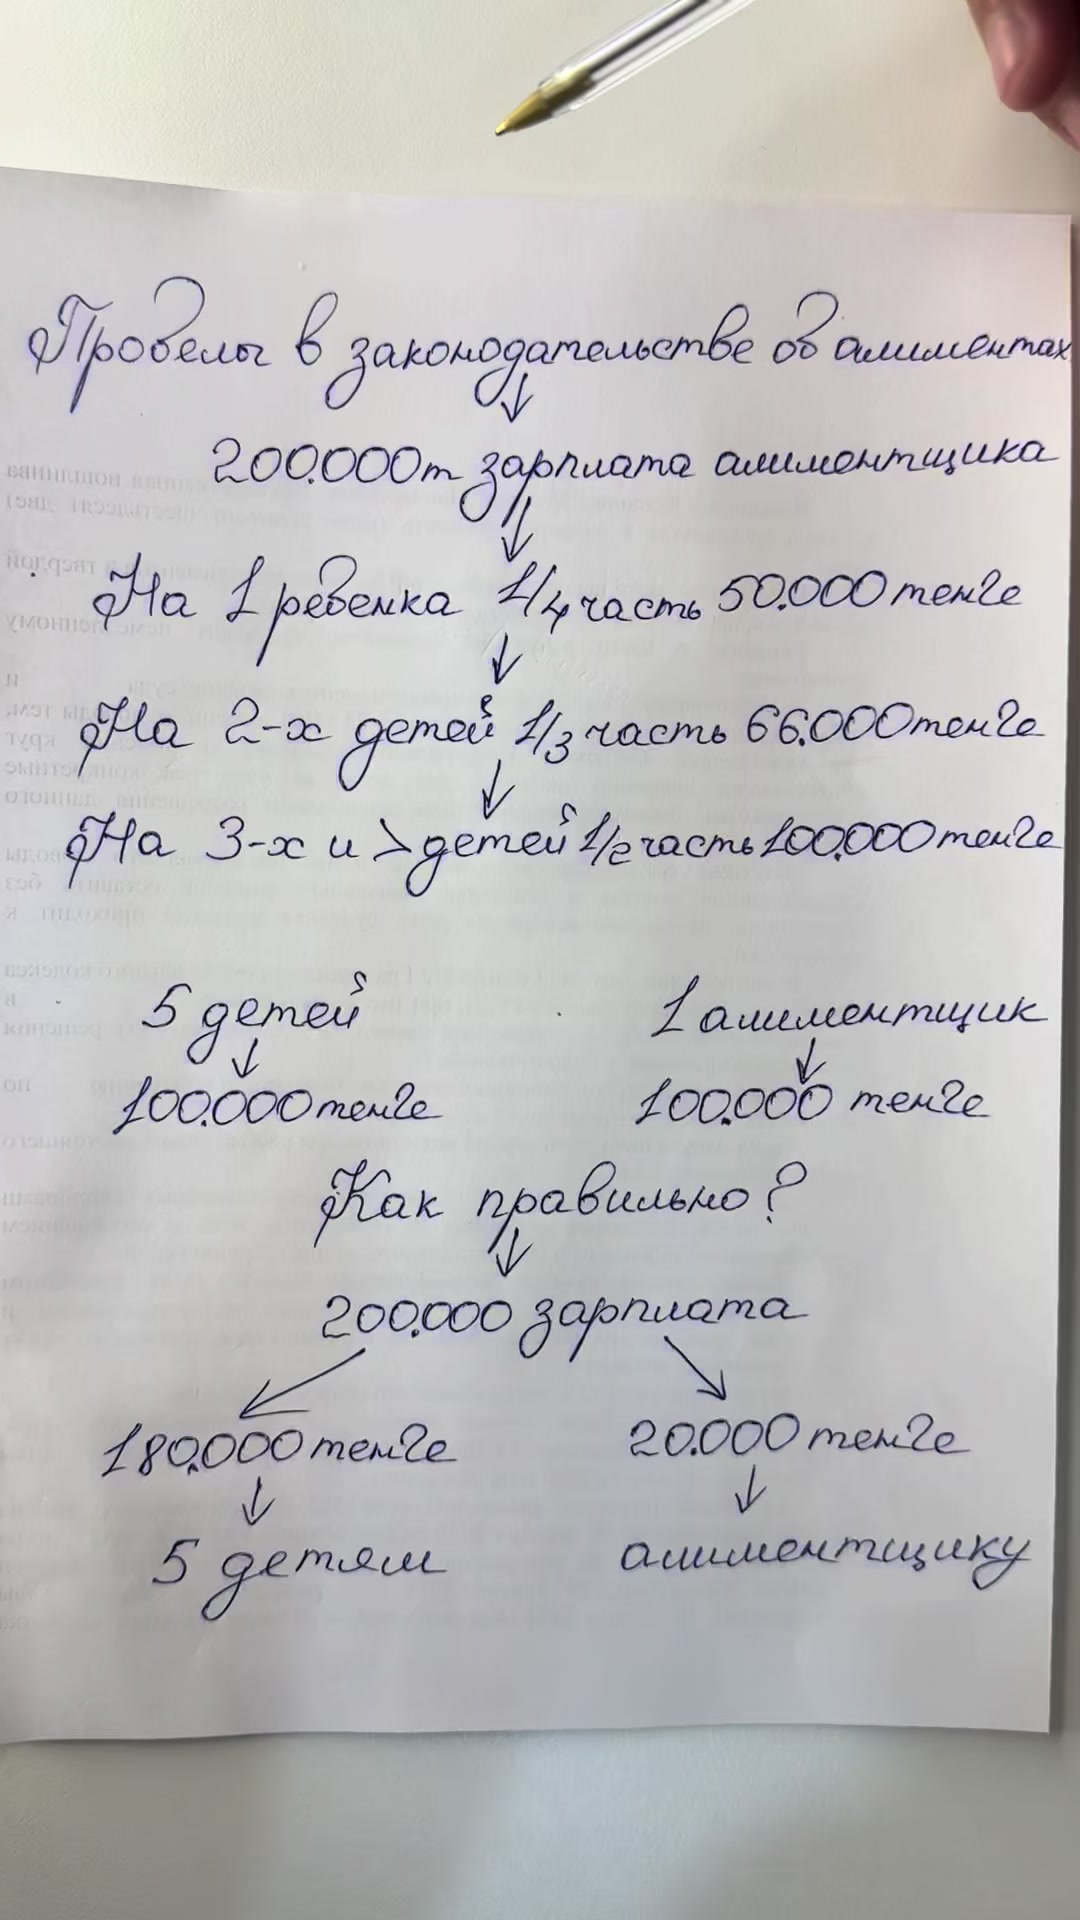 Пробелы в законодательстве об алиментах
200.000т зарплата алиментщика
На 1 ребенка 1/4 часть 50.000 тенге
На 2-х детей 1/3 часть 66.000 тенге
На 3-х и > детей 1/2 часть 100.000 тенге
5 детей
1 алиментщик
100.000 тенге
100.000 тенге
Как правильно?
200.000 зарплата
180.000 тенге
20.000 тенге
5 детям
алиментщику